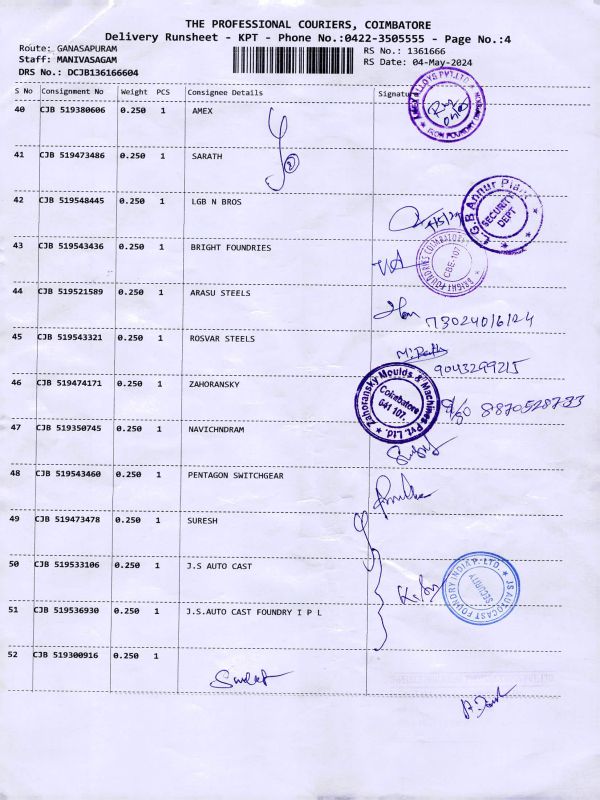 THE PROFESSIONAL COURIERS, COIMBATORE
Delivery Runsheet - KPT - Phone No.:0422-3505555 - Page No.:4
Route: GANASAPURAM
RS No.: 1361666
Staff: MANIVASAGAM
RS Date: 04-May-2024
DRS No.: DCJB136166604
S No Consignment No Weight PCS Consignee Details Signatu
40 CJB 519380606 0.250 1 AMEX
AMEX ALLOYS PVT.LTD
41 CJB 519473486 0.250 1 SARATH
2
42 CJB 519548445 0.250 1 LGB N BROS
4/5/24
L.G.B Annur Plant
SECURITY
DEPT
43 CJB 519543436 0.250 1 BRIGHT FOUNDRIES
BRIGHT FOUNDRIES COIMBATORE
CBE-107
44 CJB 519521589 0.250 1 ARASU STEELS
45 CJB 519543321 0.250 1 ROSVAR STEELS
9043299215
46 CJB 519474171 0.250 1 ZAHORANSKY
Zahoransky Moulds & Machines Pvt. Ltd.
Coimbatore
641 107.
47 CJB 519350745 0.250 1 NAVICHNDRAM
48 CJB 519543460 0.250 1 PENTAGON SWITCHGEAR
49 CJB 519473478 0.250 1 SURESH
50 CJB 519533106 0.250 1 J.S AUTO CAST
JS AUTOCAST FOUNDRY INDIA P. LTD.
SECURITY
51 CJB 519536930 0.250 1 J.S.AUTO CAST FOUNDRY I P L
52 CJB 519300916 0.250 1